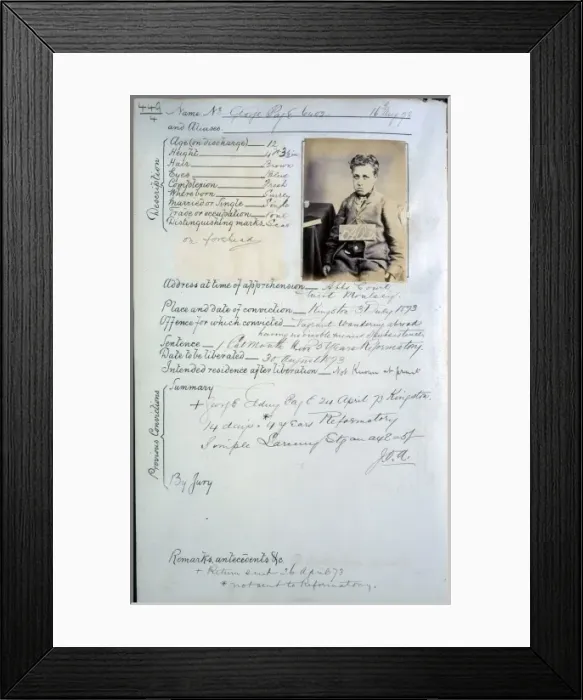 449
4
Name No George Page
and Aliases
Description
Age (on discharge) 12
Height 4 ft 3½ in
Hair Brown
Eyes Blue
Complexion Fresh
Where born Surrey
Married or Single Single
Trade or occupation None
Distinguishing marks Scar
on forehead
Address at time of apprehension
Place and date of conviction Kingston 31 July 1873
Offence for which convicted Vagrant wandering abroad
having no visible means of subsistence
Sentence 1 Cal Month & 5 Years Reformatory
Date to be liberated 30 August 1873
Intended residence after liberation Not Known at present
Previous Convictions
Summary
+ 24 April 73 Kingston
14 days & 4 years Reformatory
Simple Larceny
By Jury
Remarks, antecedents &c.
+ Return sent 26 April 73
* not sent to Reformatory.